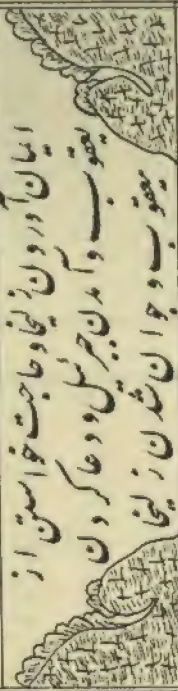 ایمان آوردن زلیخا و حاجت خواستن از
یعقوب و آمدن جبرئیل و دعا کردن
یعقوب و جوان شدن زلیخا